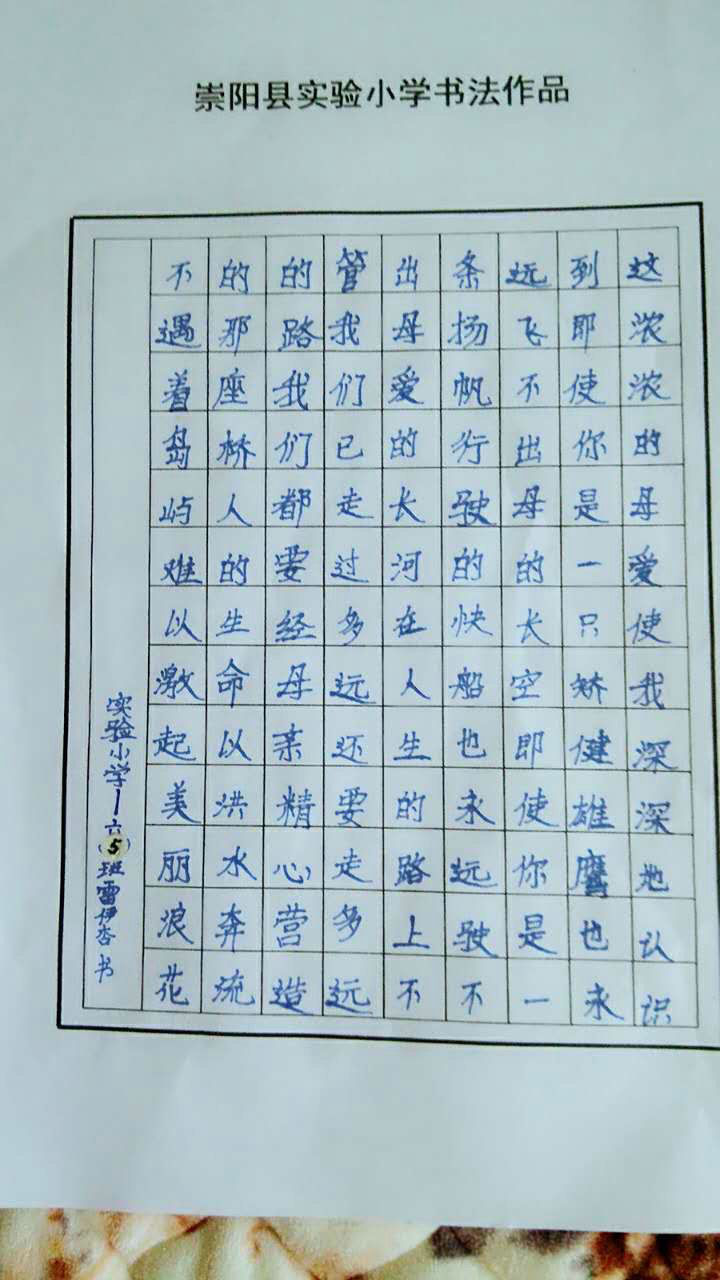 崇阳县实验小学书法作品
这浓浓的母爱使我深深地认识
到即使你是一只矫健雄鹰也永
远飞不出母的长空即使你是一
条扬帆行驶的快船也永远驶不
出母爱的长河在人生的路上不
管我们已走过多远还要走多远
的路我们都要经母亲精心营造
的那座桥人的生命以洪水奔流
不遇着岛屿难以激起美丽浪花
实验小学一六(5)班雷伊杏书